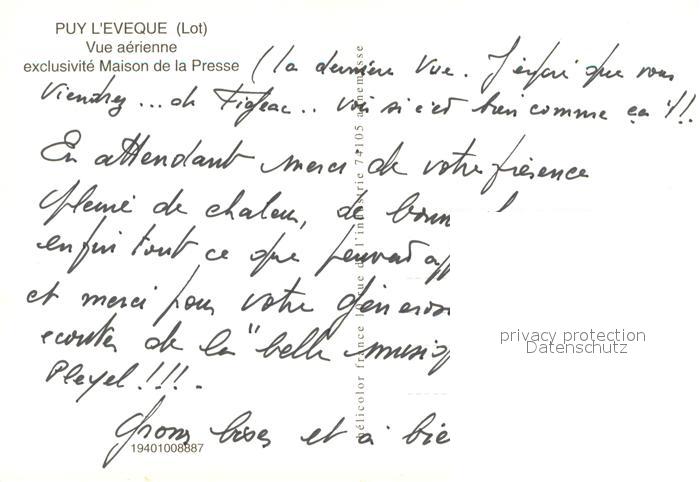 PUY L'EVEQUE (Lot)
Vue aérienne
exclusivité Maison de la Presse
(la dernière Vue. J'espère que vous
Viendrez... de Figeac.. voir si c'est bien comme ça !!
En attendant merci de votre présence
pleine de chaleur, de bonn
enfin tout ce que peuvent app
et merci pour votre généros
écouter de la "belle musiq
Pleyel!!!.
Gros bises et à bie
hélicolor france rue de l'industrie 74105 annemasse
privacy protection
Datenschutz
19401008887